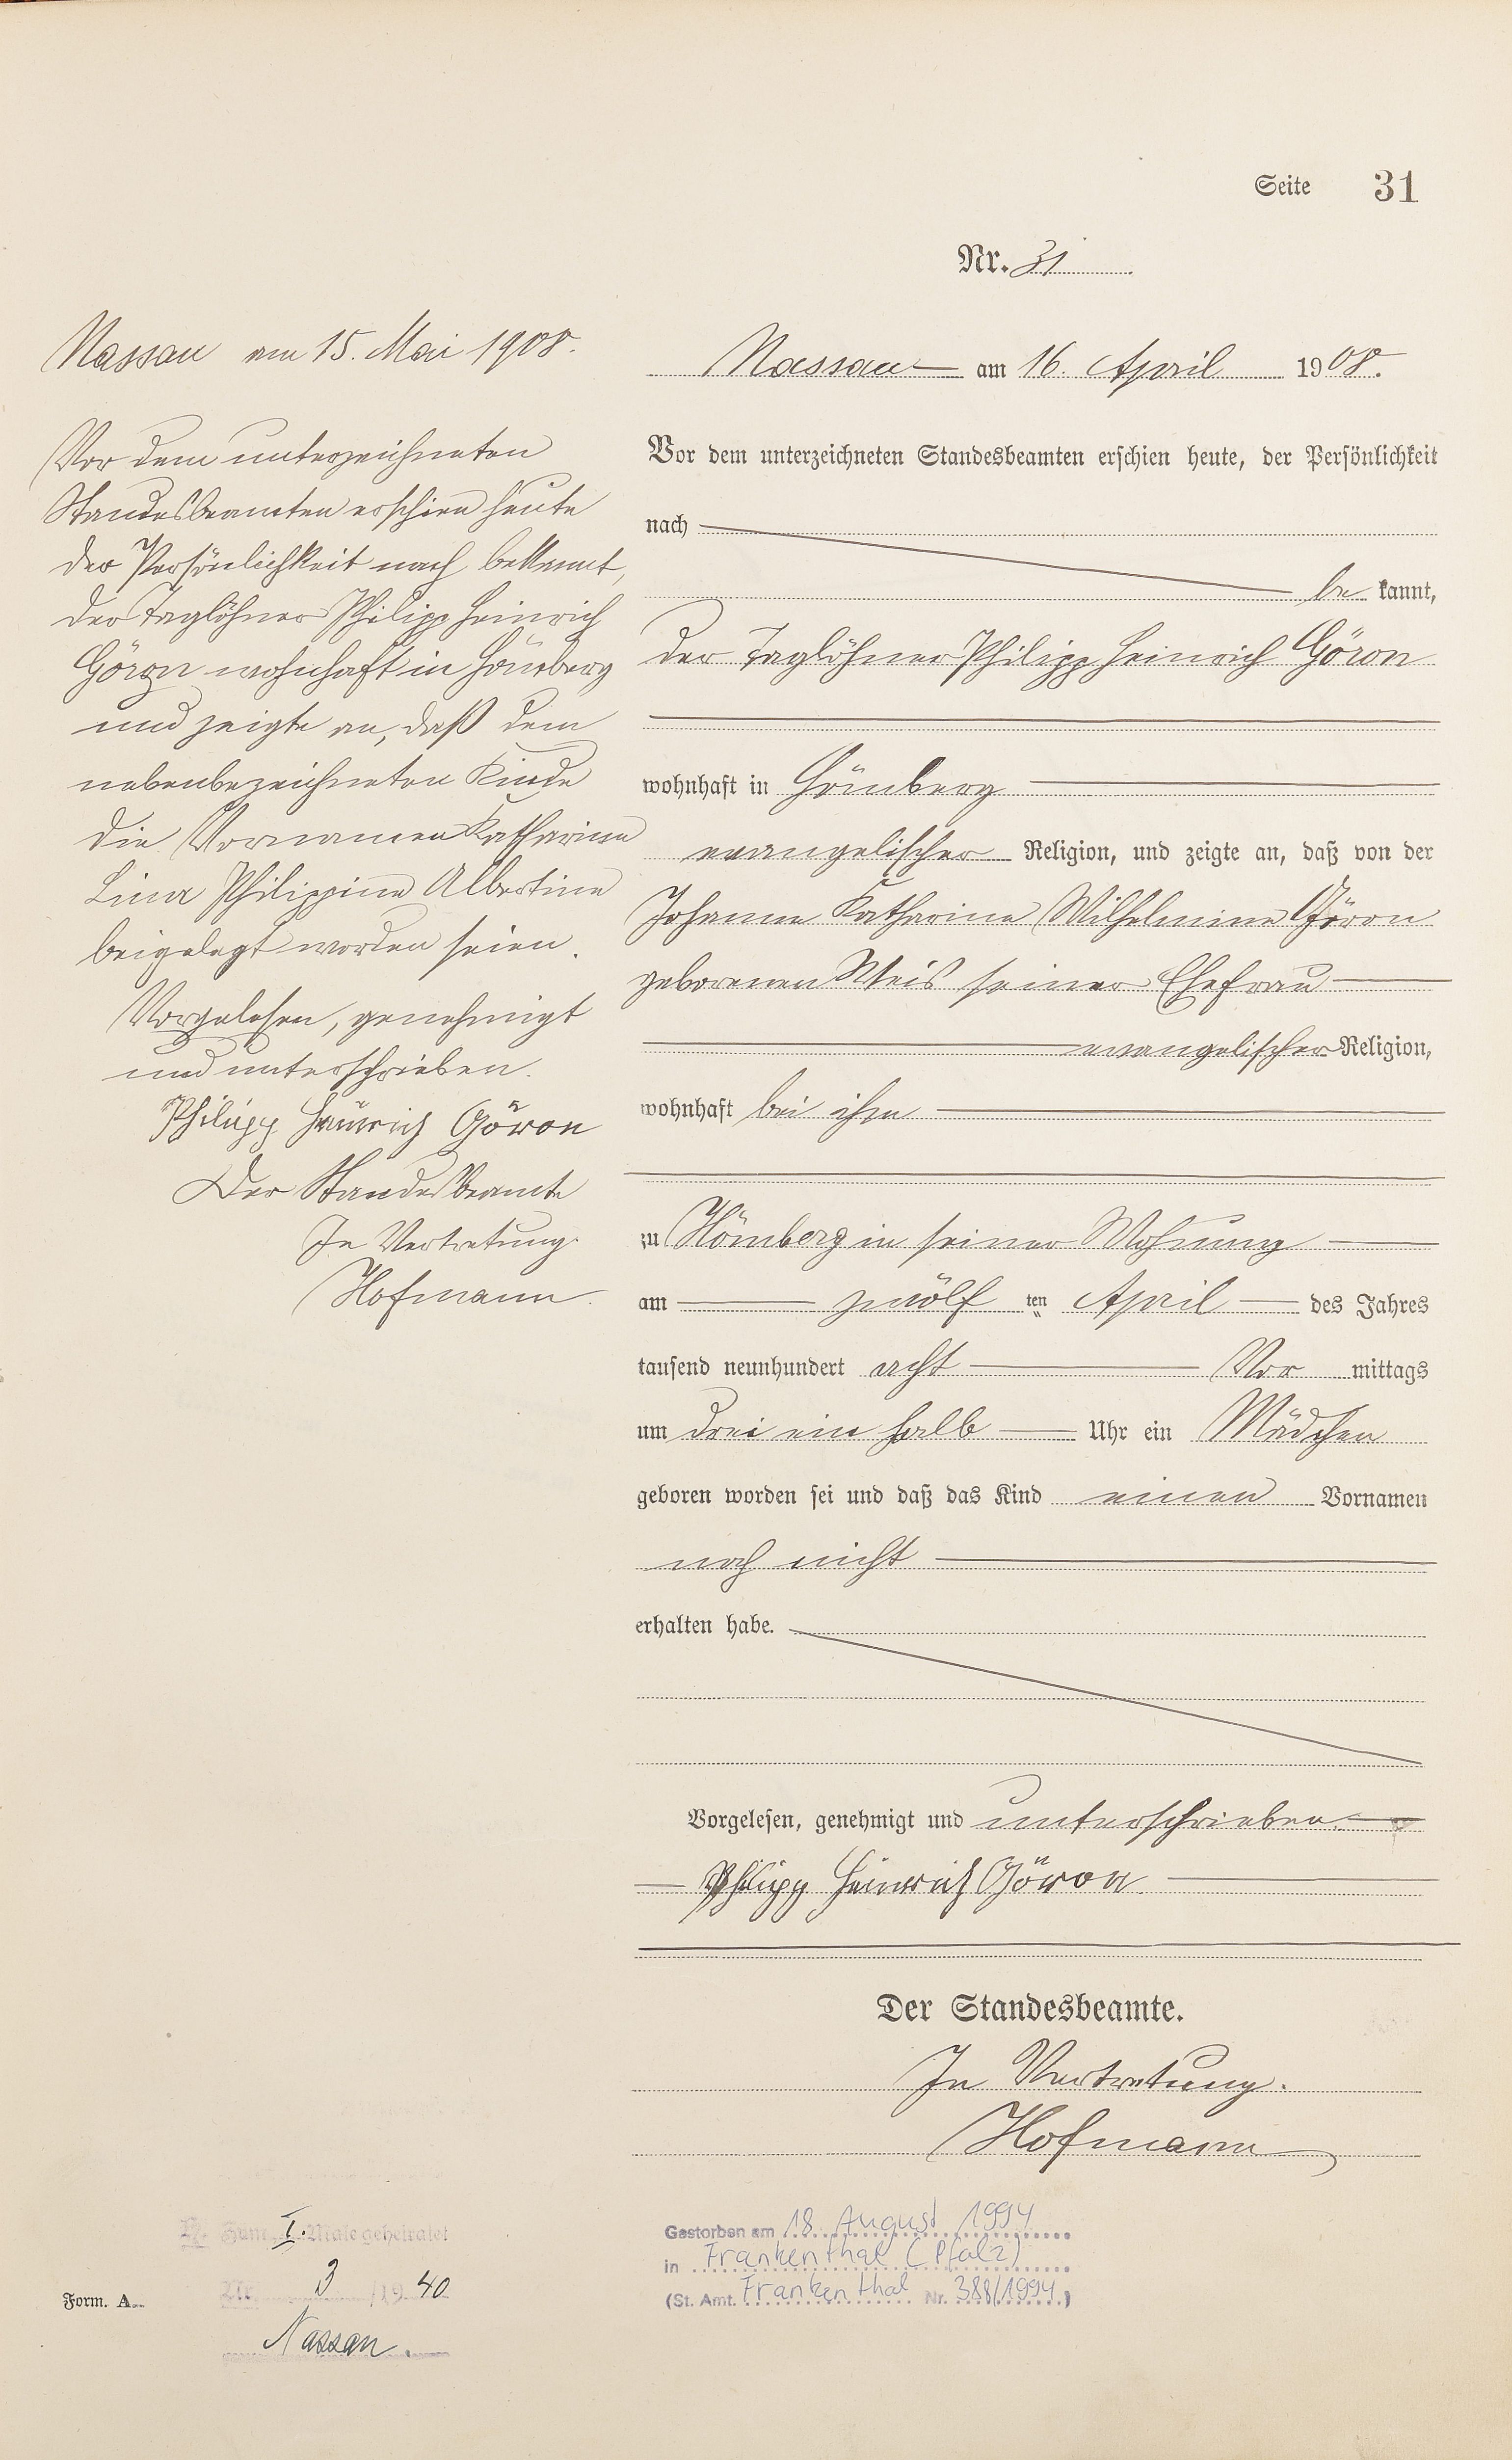 Seite 31
Nr. 31
Nassau am 15. Mai 1908.
Vor dem unterzeichneten
Standesbeamten erschien heute
der Persönlichkeit nach bekannt,
der Taglöhner Philipp Heinrich
Göron wohnhaft in Hömberg
und zeigte an, daß dem
nebenbezeichneten Kinde
die Vornamen Katharina
Lina Philippine Albertine
beigelegt worden seien.
Vorgelesen, genehmigt
und unterschrieben.
Philipp Heinrich Göron
Der Standesbeamte
In Vertretung
Hofmann
Nassau am 16. April 1908.
Vor dem unterzeichneten Standesbeamten erschien heute, der Persönlichkeit
nach
be kannt,
der Taglöhner Philipp Heinrich Göron
wohnhaft in Hömberg
evangelischer Religion, und zeigte an, daß von der
Johanna Katharina Wilhelmine Göron
geborenen Weis seiner Ehefrau
evangelischer Religion,
wohnhaft bei ihm
zu Hömberg in seiner Wohnung
am zwölf ten April des Jahres
tausend neunhundert acht Vor mittags
um drei ein halb Uhr ein Mädchen
geboren worden sei und daß das Kind einen Vornamen
noch nicht
erhalten habe.
Vorgelesen, genehmigt und unterschrieben.
Philipp Heinrich Göron
Der Standesbeamte.
In Vertretung.
Hofmann
Zum I. Male geheiratet
Nr. 3 /19 40
Nassau.
Form. A.
Gestorben am 18. August 1994
in Frankenthal (Pfalz)
(St. Amt. Frankenthal Nr. 388/1994)